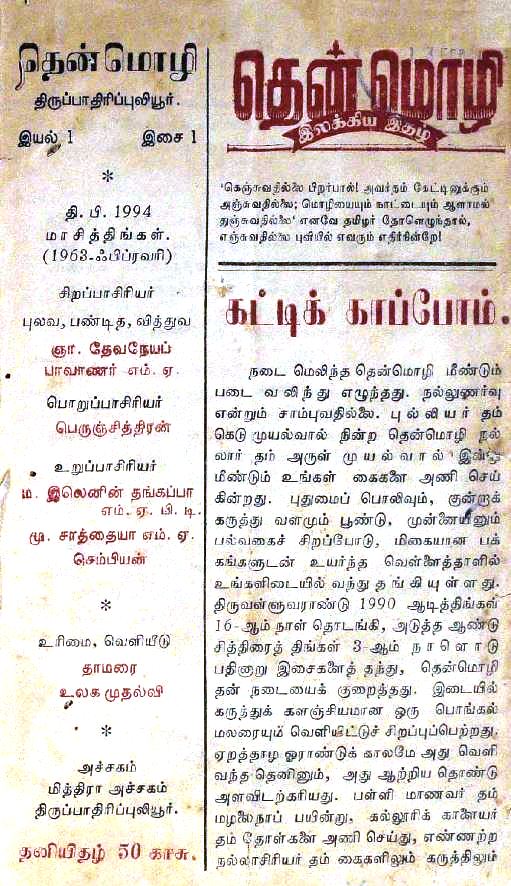 தென்மொழி
திருப்பாதிரிப்புலியூர்.
இயல் 1 இசை 1
*
தி. பி. 1994
மாசித்திங்கள்.
(1963-ஃபிப்ரவரி)
சிறப்பாசிரியர்
புலவ, பண்டித, வித்துவ
ஞா. தேவநேயப்
பாவாணர் எம். ஏ.
பொறுப்பாசிரியர்
பெருஞ்சித்திரன்
உறுப்பாசிரியர்
ம. இலெனின் தங்கப்பா
எம். ஏ. பி. டி.
மு. சாத்தையா எம். ஏ.
செம்பியன்
*
உரிமை, வெளியீடு
தாமரை
உலக முதல்வி
*
அச்சகம்
மித்திரா அச்சகம்
திருப்பாதிரிப்புலியூர்.
தனியிதழ் 50 காசு.
தென்மொழி
இலக்கிய இதழ்
'கெஞ்சுவதில்லை பிறர்பால்! அவர்தம் கேட்டினுக்கும்
அஞ்சுவதில்லை; மொழியையும் நாட்டையும் ஆளாமல்
துஞ்சுவதில்லை' எனவே தமிழர் தோளெழுந்தால்,
எஞ்சுவதில்லை புவியில் எவரும் எதிர்நின்றே!
கட்டிக் காப்போம்.
நடை மெலிந்த தென்மொழி மீண்டும்
படை வலிந்து எழுந்தது. நல்லுணர்வு
என்றும் சாம்புவதில்லை. புல்லியர் தம்
கெடு முயல்வால் நின்ற தென்மொழி நல்
லார் தம் அருள் முயல்வால் இன்று
மீண்டும் உங்கள் கைகளை அணி செய்
கின்றது. புதுமைப் பொலிவும், குன்றாக்
கருத்து வளமும் பூண்டு, முன்னையினும்
பல்வகைச் சிறப்போடு, மிகையான பக்
கங்களுடன் உயர்ந்த வெள்ளைத்தாளில்
உங்களிடையில் வந்து தங்கியுள்ளது.
திருவள்ளுவராண்டு 1990 ஆடித்திங்கள்
16-ஆம் நாள் தொடங்கி, அடுத்த ஆண்டு
சித்திரைத் திங்கள் 3-ஆம் நாளொடு
பதினாறு இசைகளைத் தந்து, தென்மொழி
தன் நடையைக் குறைத்தது. இடையில்
கருத்துக் களஞ்சியமான ஒரு பொங்கல்
மலரையும் வெளியிட்டுச் சிறப்புப்பெற்றது.
ஏறத்தாழ ஓராண்டுக் காலமே அது வெளி
வந்ததெனினும், அது ஆற்றிய தொண்டு
அளவிடற்கரியது. பள்ளி மாணவர் தம்
மழலைநாப் பயின்று, கல்லூரிக் காளையர்
தம் தோள்களை அணி செய்து, எண்ணற்ற
நல்லாசிரியர் தம் கைகளிலும் கருத்திலும்